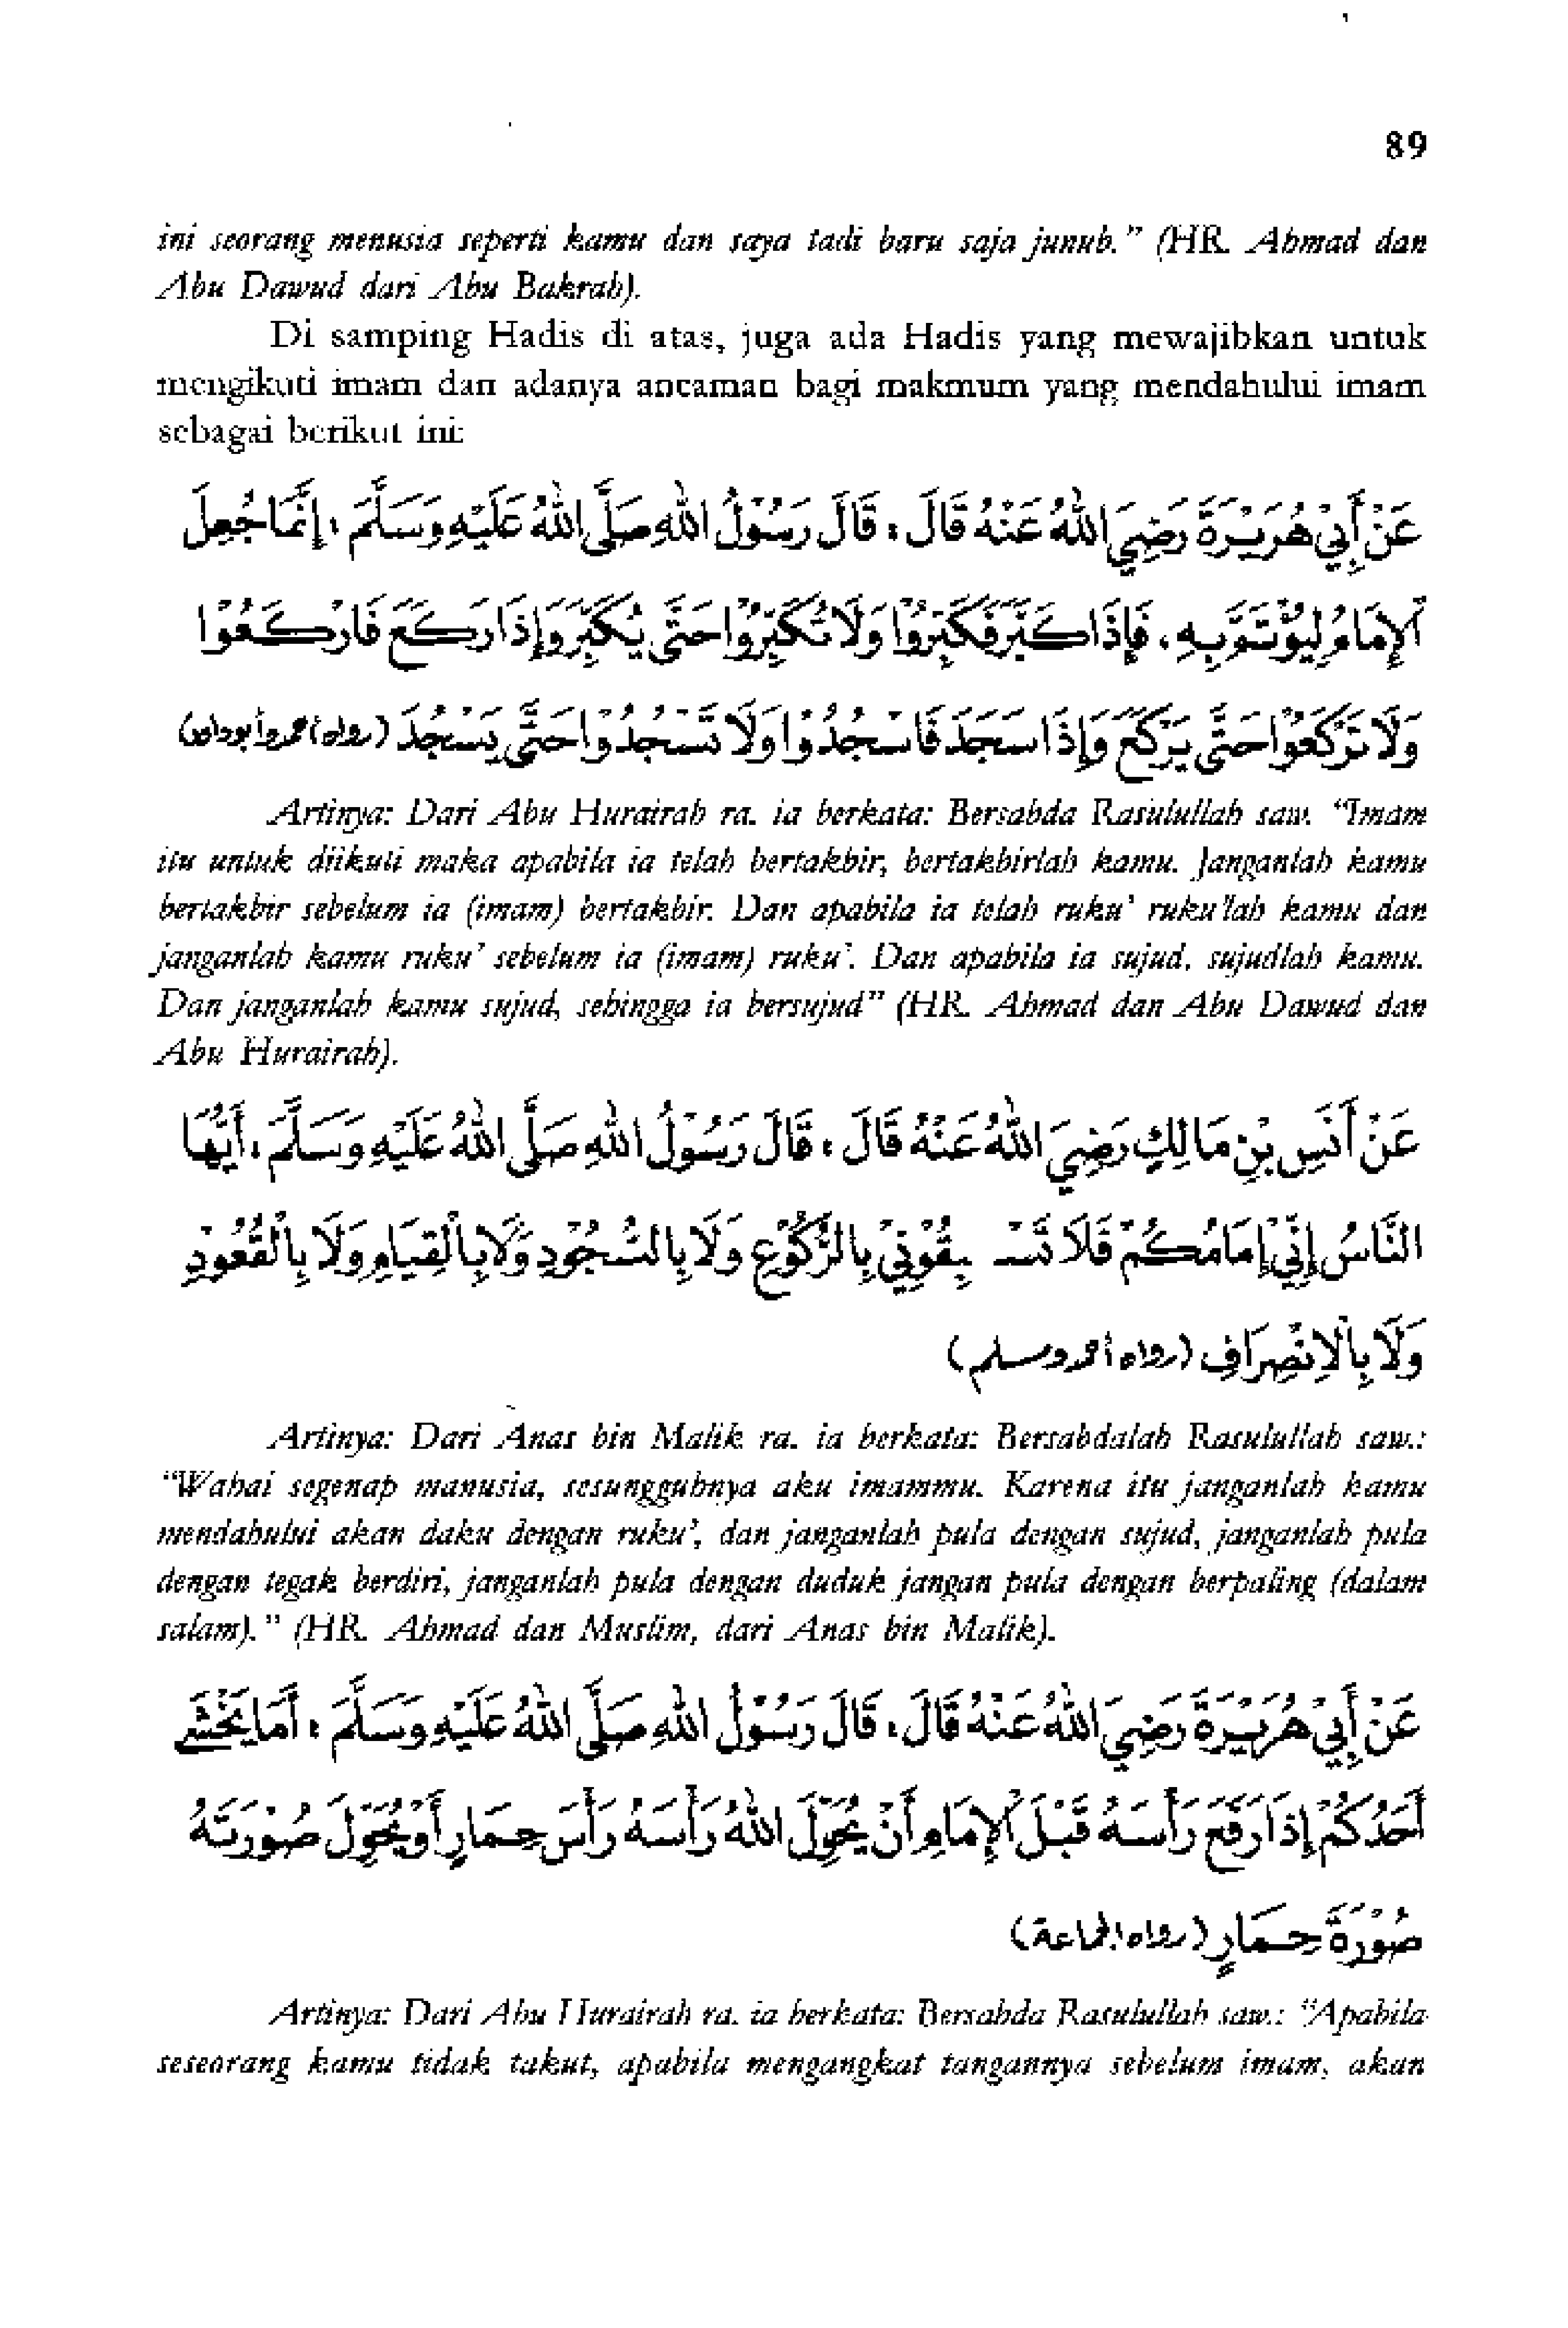 89
ini seorang menusia seperti kamu dan saya tadi baru saja junub." (HR. Ahmad dan
Abu Dawud dari Abu Bakrah).
Di samping Hadis di atas, juga ada Hadis yang mewajibkan untuk
mengikuti imam dan adanya ancaman bagi makmum yang mendahului imam
sebagai berikut ini:
عَنْ أَبِيْ هُرَيْرَةَ رَضِيَ اللهُ عَنْهُ قَالَ، قَالَ رَسُوْلُ اللهِ صَلَّى اللهُ عَلَيْهِ وَسَلَّمَ، إِنَّمَا جُعِلَ
الْإِمَامُ لِيُؤْتَمَّ بِهِ، فَإِذَا كَبَّرَ فَكَبِّرُوْا وَلَا تُكَبِّرُوْا حَتَّى يُكَبِّرَ وَإِذَا رَكَعَ فَارْكَعُوْا
وَلَا تَرْكَعُوْا حَتَّى يَرْكَعَ وَإِذَا سَجَدَ فَاسْجُدُوْا وَلَا تَسْجُدُوْا حَتَّى يَسْجُدَ (رواه احمد وأبوداود)
Artinya: Dari Abu Hurairah ra. ia berkata: Bersabda Rasulullah saw. "Imam
itu untuk diikuti maka apabila ia telah bertakbir, bertakbirlah kamu. Janganlah kamu
bertakbir sebelum ia (imam) bertakbir. Dan apabila ia telah ruku' ruku'lah kamu dan
janganlah kamu ruku' sebelum ia (imam) ruku'. Dan apabila ia sujud, sujudlah kamu.
Dan janganlah kamu sujud, sehingga ia bersujud" (HR. Ahmad dan Abu Dawud dan
Abu Hurairah).
عَنْ أَنَسِ بْنِ مَالِكٍ رَضِيَ اللهُ عَنْهُ قَالَ، قَالَ رَسُوْلُ اللهِ صَلَّى اللهُ عَلَيْهِ وَسَلَّمَ، أَيُّهَا
النَّاسُ إِنِّيْ إِمَامُكُمْ فَلَا تَسْبِقُوْنِيْ بِالرُّكُوْعِ وَلَا بِالسُّجُوْدِ وَلَا بِالْقِيَامِ وَلَا بِالْقُعُوْدِ
وَلَا بِالْاِنْصِرَافِ (رواه أحمد ومسلم)
Artinya: Dari Anas bin Malik ra. ia berkata: Bersabdalah Rasulullah saw.:
"Wahai segenap manusia, sesungguhnya aku imammu. Karena itu janganlah kamu
mendahului akan daku dengan ruku', dan janganlah pula dengan sujud, janganlah pula
dengan tegak berdiri, janganlah pula dengan duduk jangan pula dengan berpaling (dalam
salam)." (HR. Ahmad dan Muslim, dari Anas bin Malik).
عَنْ أَبِيْ هُرَيْرَةَ رَضِيَ اللهُ عَنْهُ قَالَ، قَالَ رَسُوْلُ اللهِ صَلَّى اللهُ عَلَيْهِ وَسَلَّمَ، أَمَا يَخْشَى
أَحَدُكُمْ إِذَا رَفَعَ رَأْسَهُ قَبْلَ الْإِمَامِ أَنْ يُحَوِّلَ اللهُ رَأْسَهُ رَأْسَ حِمَارٍ أَوْ يُحَوِّلَ صُوْرَتَهُ
صُوْرَةَ حِمَارٍ (رواه الجماعة)
Artinya: Dari Abu Hurairah ra. ia berkata: Bersabda Rasulullah saw.: "Apabila
seseorang kamu tidak takut, apabila mengangkat tangannya sebelum imam, akan